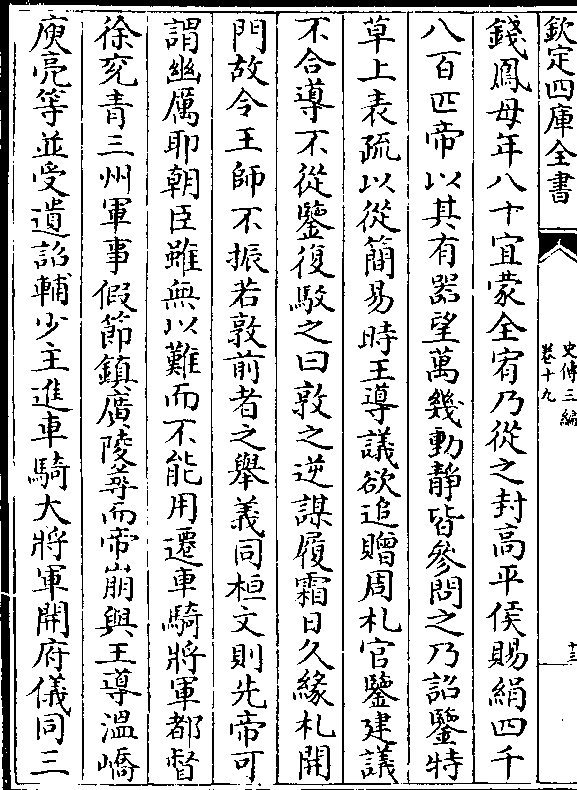 欽定四庫全書
史傳三編
卷十九
十三
錢鳳母年八十宜蒙全宥乃從之封高平侯賜絹四千
八百匹帝以其有器望萬幾動靜皆參問之乃詔鑒特
草上表疏以從簡易時王導議欲追贈周札官鑒建議
不合導不從鑒復駮之曰敦之逆謀履霜日久緣札開
門故令王師不振若敦前者之舉義同桓文則先帝可
謂幽厲耶朝臣雖無以難而不能用遷車騎將軍都督
徐兖青三州軍事假節鎮廣陵尋而帝崩與王導溫嶠
庾亮等並受遺詔輔少主進車騎大將軍開府儀同三